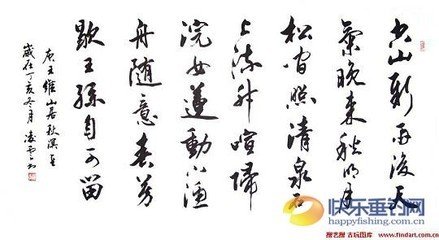 空山新雨後天
氣晚來秋明月
松間照清泉石
上流竹喧歸
浣女蓮動下漁
舟隨意春芳
歇王孫自可留
唐王維山居秋溟
歲在丁亥冬月凌雲書
快乐垂钓网
happyfishing.com.cn
搜艺搜 古玩图库 www.findart.com.cn